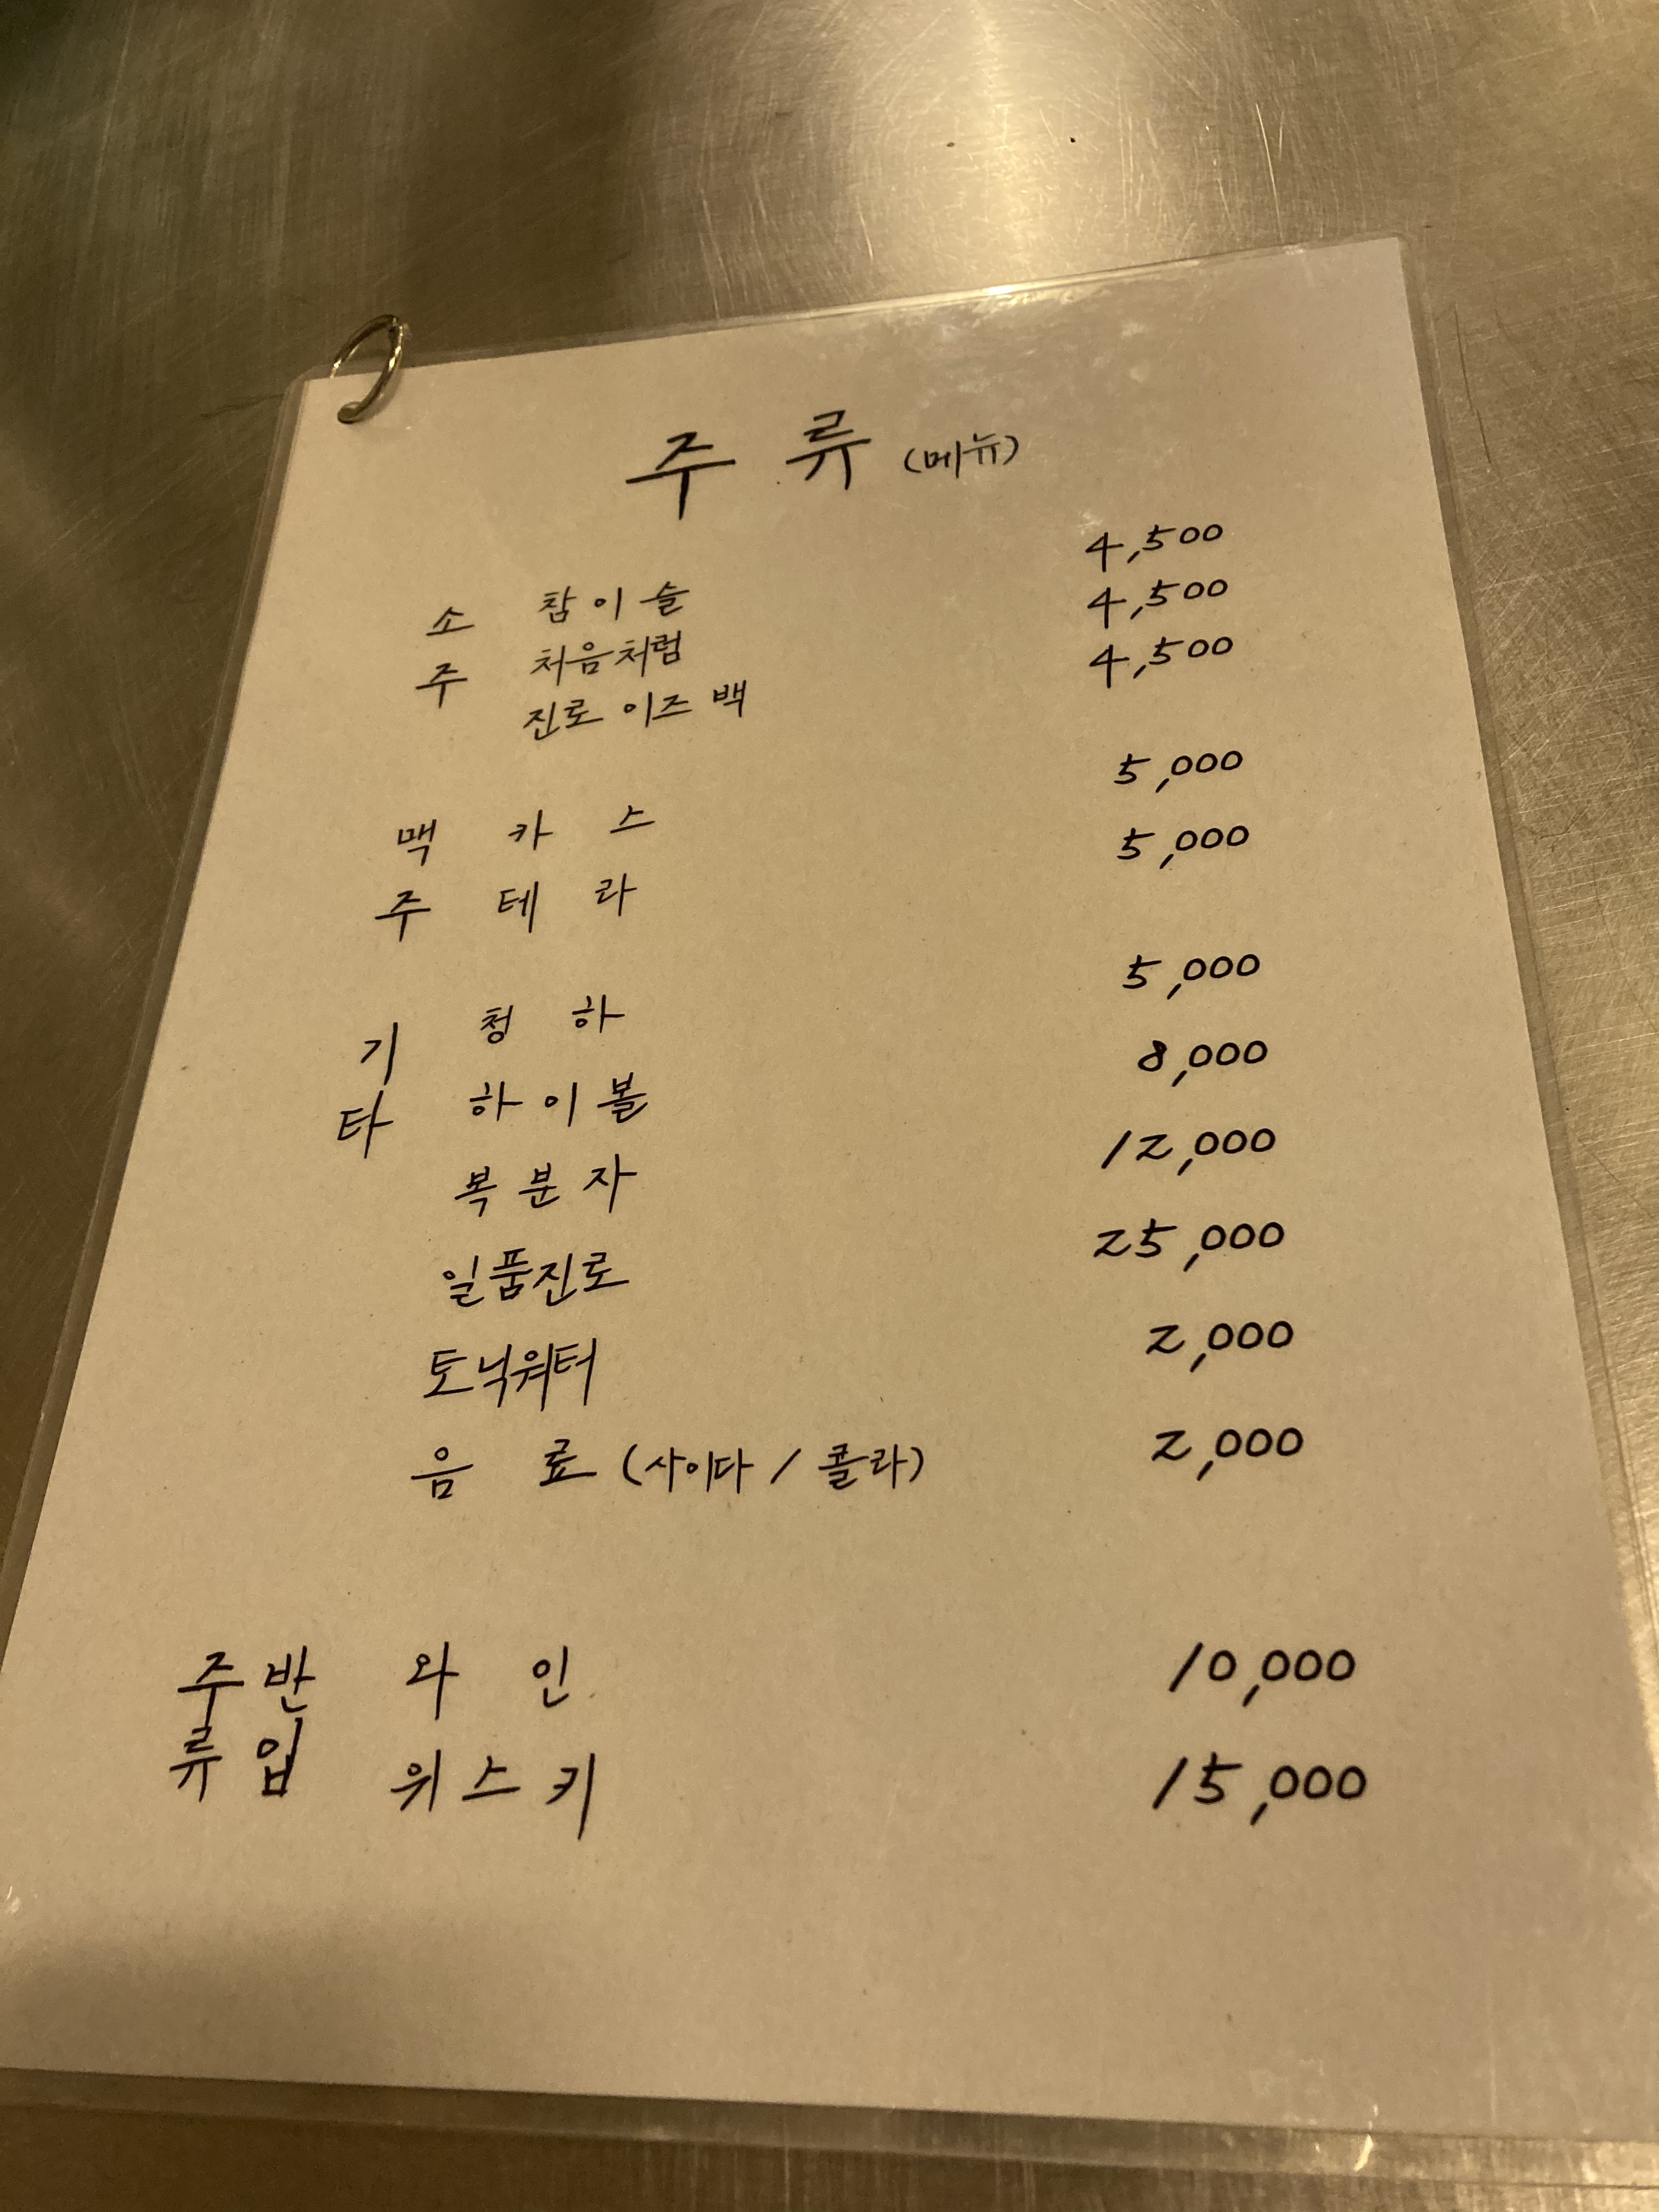 주류 (메뉴)
소주 참이슬 4,500
처음처럼 4,500
진로 이즈 백 4,500
맥주 카스 5,000
테라 5,000
기타 청하 5,000
하이볼 8,000
복분자 12,000
일품진로 25,000
토닉워터 2,000
음료 (사이다 / 콜라) 2,000
주류 반입 와인 10,000
위스키 15,000